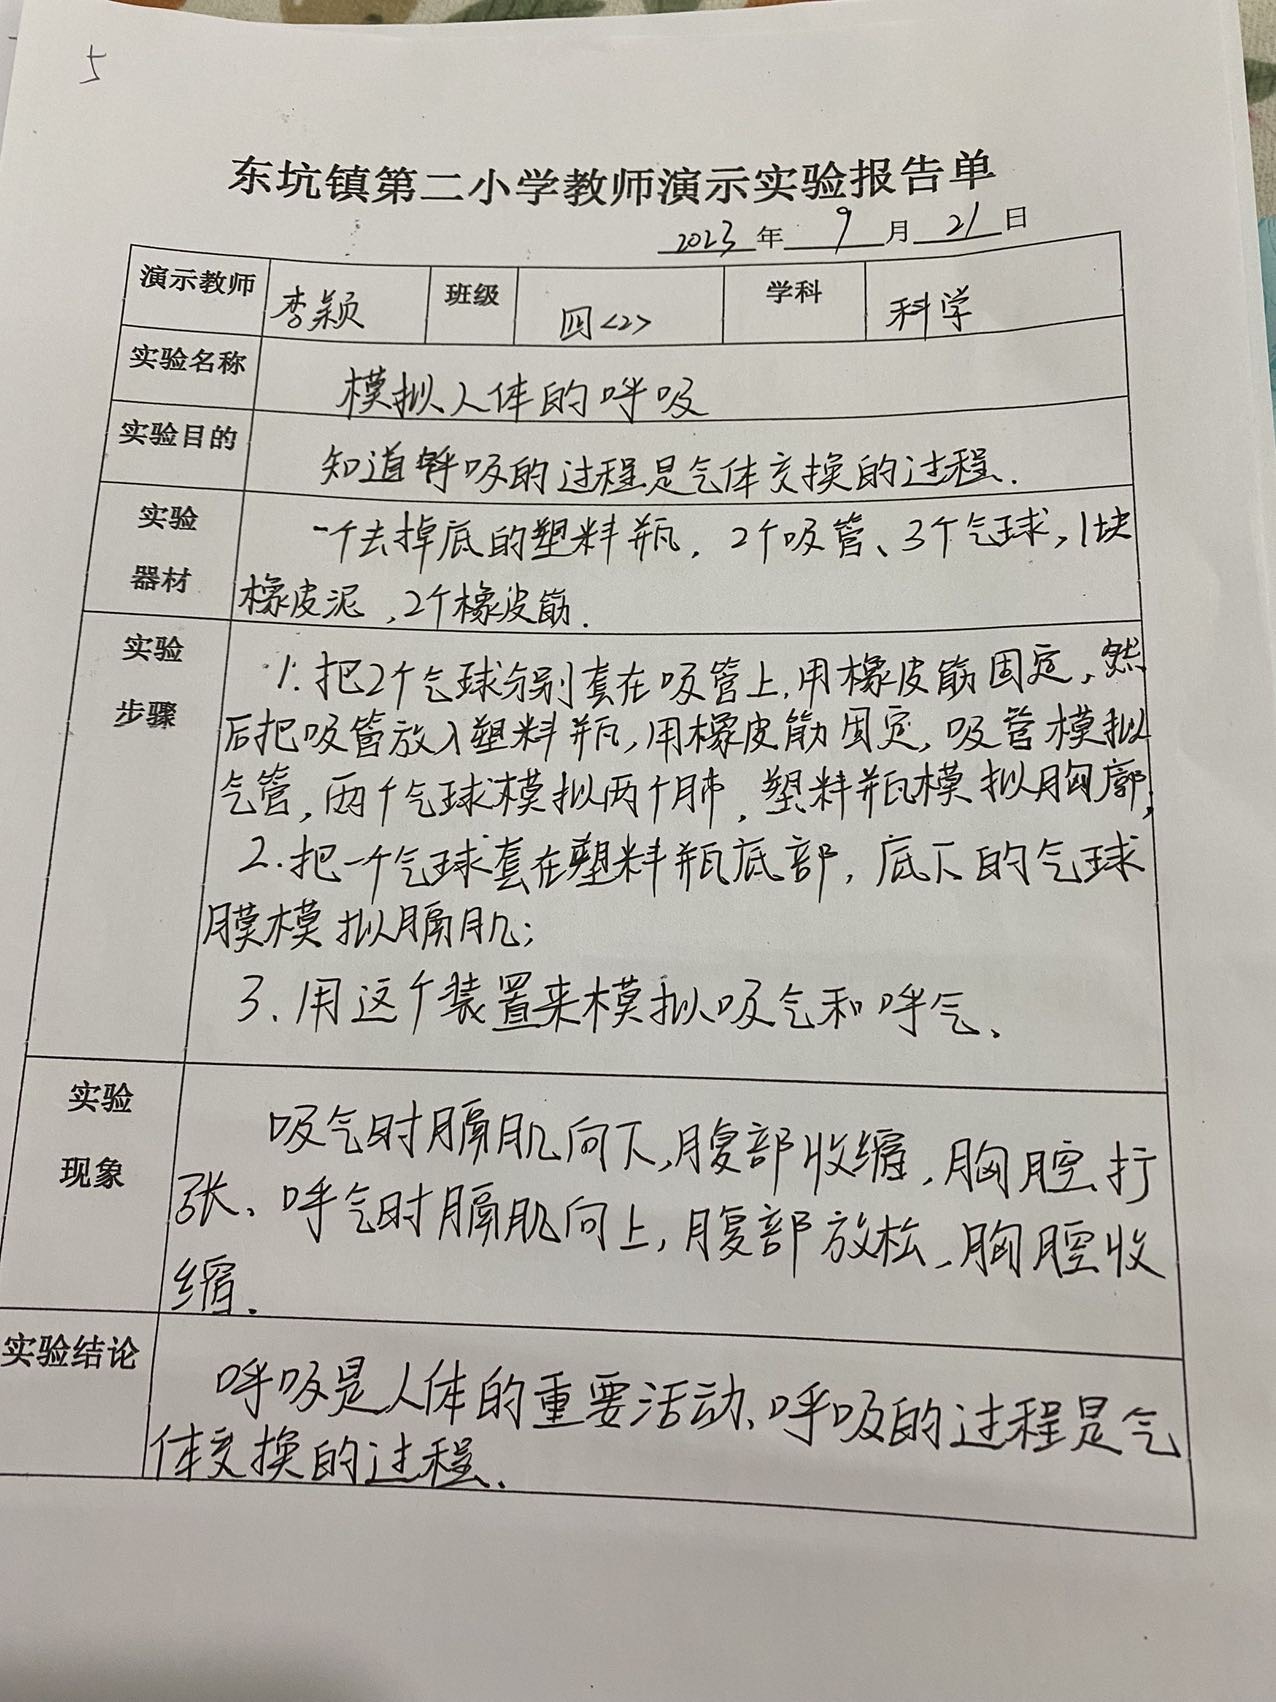 5
东坑镇第二小学教师演示实验报告单
2023年 9 月 21 日
演示教师 李颖 班级 四<2> 学科 科学
实验名称 模拟人体的呼吸
实验目的 知道呼吸的过程是气体交换的过程.
实验 一个去掉底的塑料瓶, 2个吸管、3个气球, 1块
器材 橡皮泥, 2个橡皮筋.
实验 1. 把2个气球分别套在吸管上, 用橡皮筋固定, 然
步骤 后把吸管放入塑料瓶, 用橡皮筋固定, 吸管模拟
气管, 两个气球模拟两个肺, 塑料瓶模拟胸廓,
2. 把一个气球套在塑料瓶底部, 底下的气球
膜模拟膈肌;
3. 用这个装置来模拟吸气和呼气、
实验 吸气时膈肌向下, 腹部收缩, 胸腔扩
现象 张、呼气时膈肌向上, 腹部放松、胸腔收
缩.
实验结论 呼吸是人体的重要活动、呼吸的过程是气
体交换的过程、